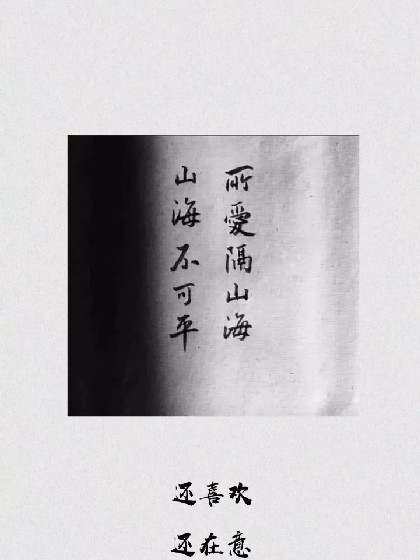 所愛隔山海
山海不可平
还喜欢
还在意